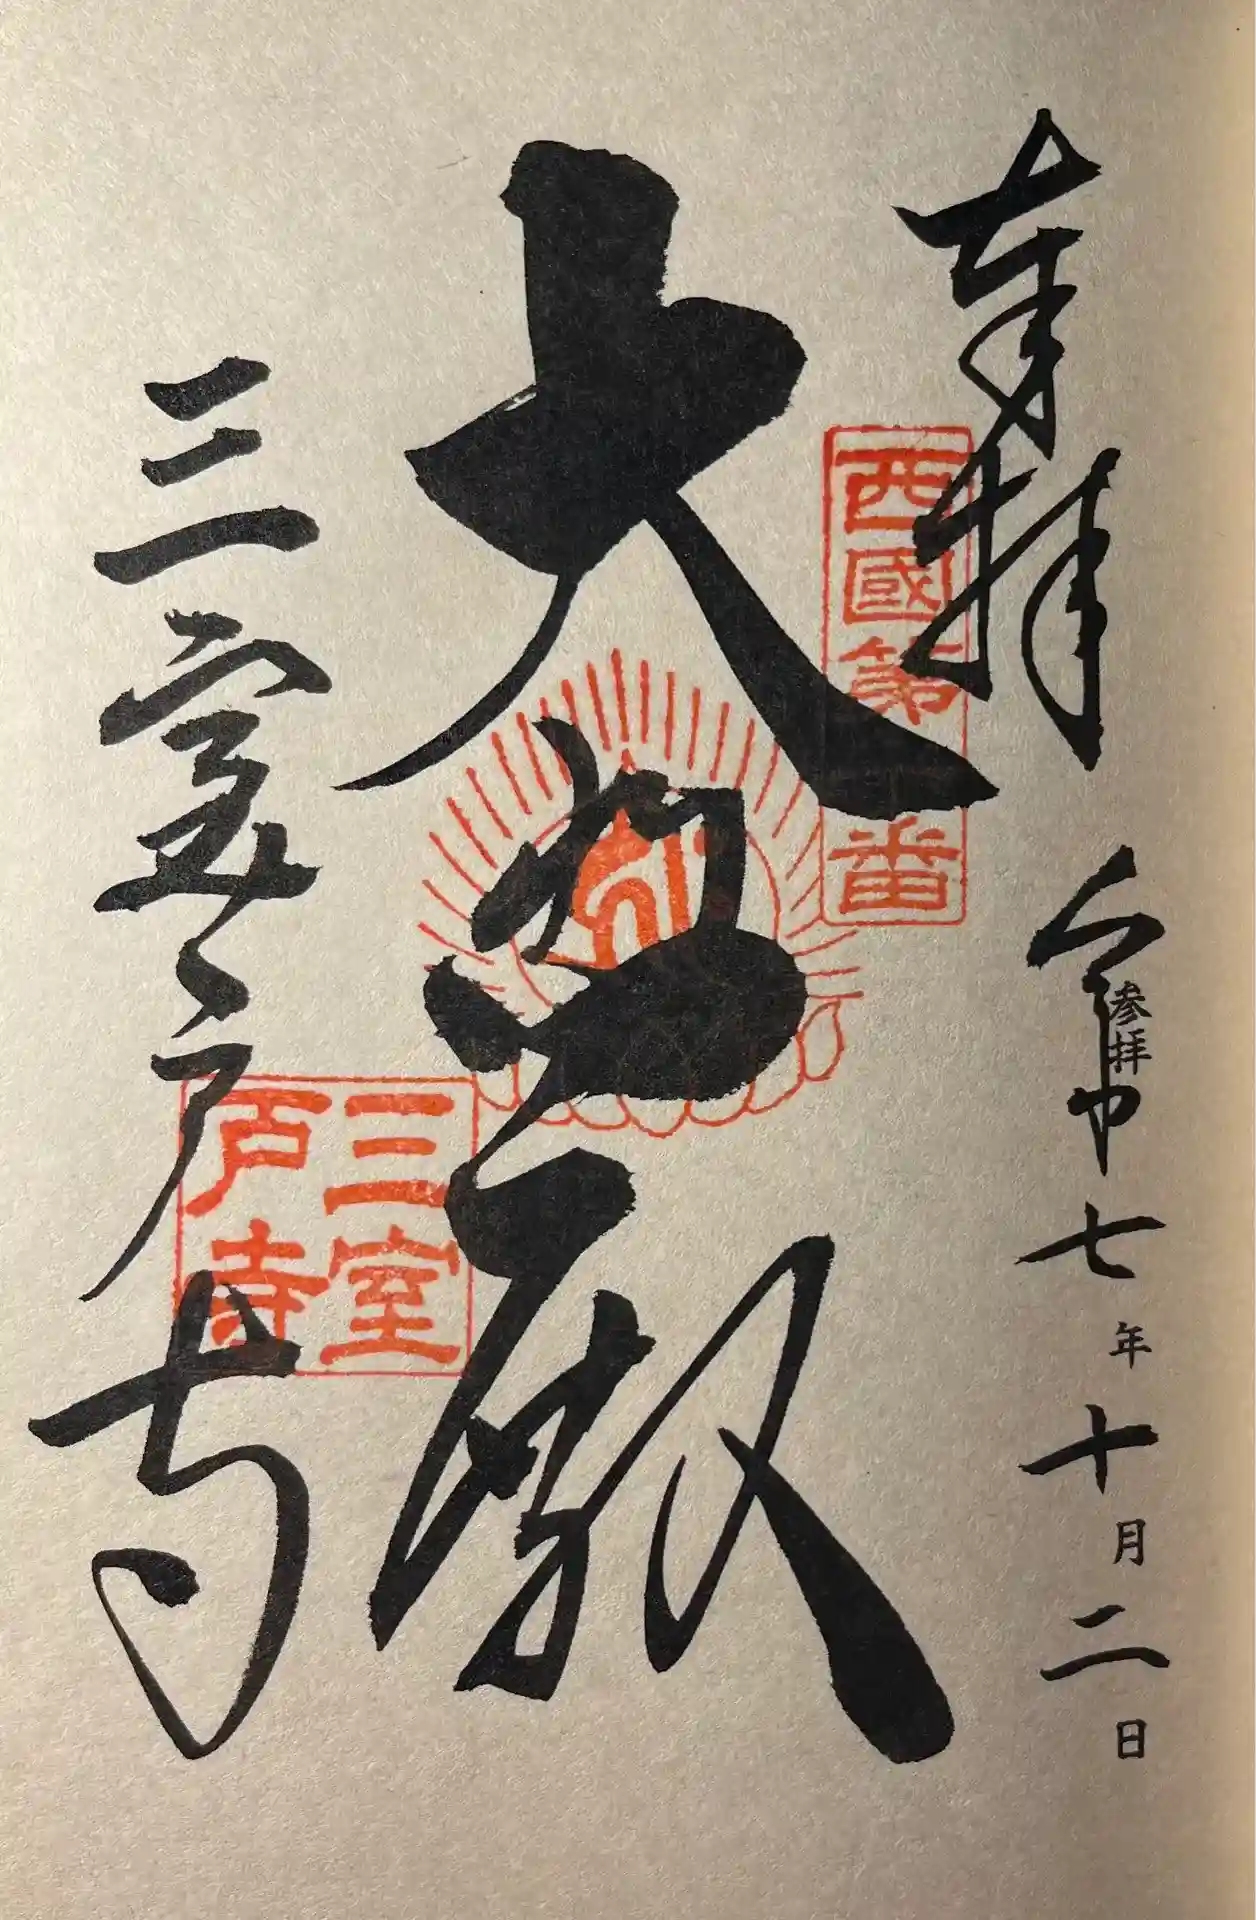 奉拝
参拝
令和七年十月二日
西國第
番
大悲殿
三室戸寺
三室
戸寺